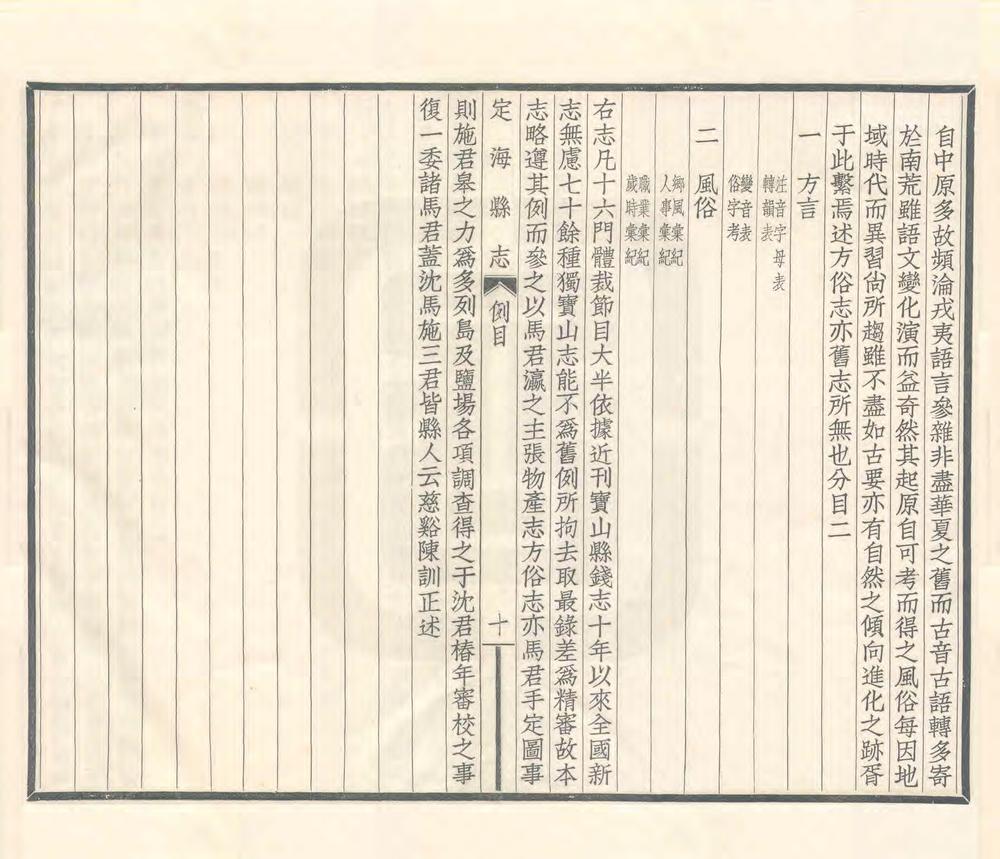 自中原多故頻淪戎夷語言參雜非盡華夏之舊而古音古語轉多寄
於南荒雖語文變化演而益奇然其起原自可考而得之風俗每因地
域時代而異習尙所趨雖不盡如古要亦有自然之傾向進化之跡胥
于此繫焉述方俗志亦舊志所無也分目二
一 方言
注音字母表
轉韻表
變音表
俗字考
二 風俗
鄉風彙紀
人事彙紀
職業彙紀
歲時彙紀
右志凡十六門體裁節目大半依據近刊寶山縣錢志十年以來全國新
志無慮七十餘種獨寶山志能不爲舊例所拘去取最錄差爲精審故本
志略遵其例而參之以馬君瀛之主張物產志方俗志亦馬君手定圖事
定海縣志 例目 十
則施君皋之力爲多列島及鹽場各項調查得之于沈君椿年審校之事
復一委諸馬君蓋沈馬施三君皆縣人云慈谿陳訓正述